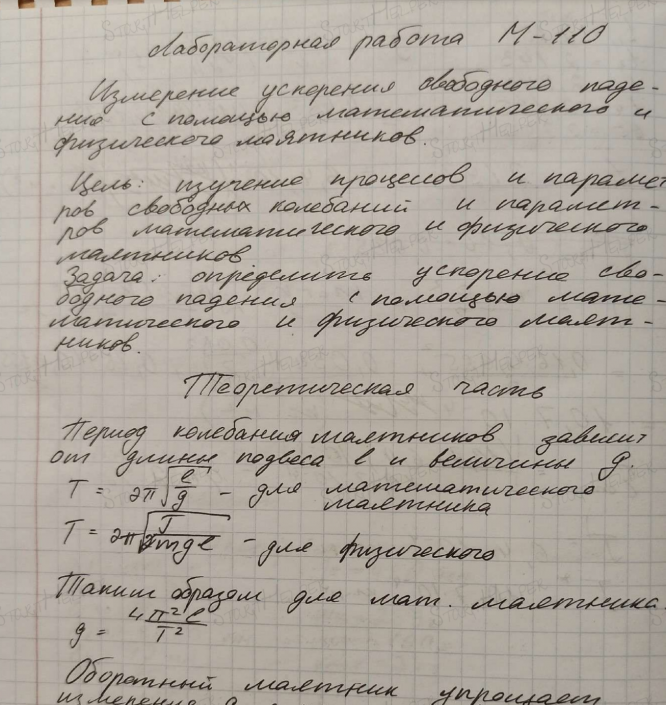 Лабораторная работа М-110
Измерение ускорения свободного паде-
ние с помощью математического и
физического маятников.
Цель: изучение процессов и парамет
ров свободных колебаний и парамет-
ров математического и физического
маятников
Задача: определить ускорение сво-
бодного падения с помощью мате-
матического и физического маят-
ников.
Теоретическая часть
Период колебания маятников зависит
от длины подвеса l и величины g.
T = 2π√(l/g) - для математического
маятника
T = 2π√(J/mgl) - для физического
Таким образом для мат. маятника.
g = 4π²l/T²
Оборотный маятник упрощает
измерение